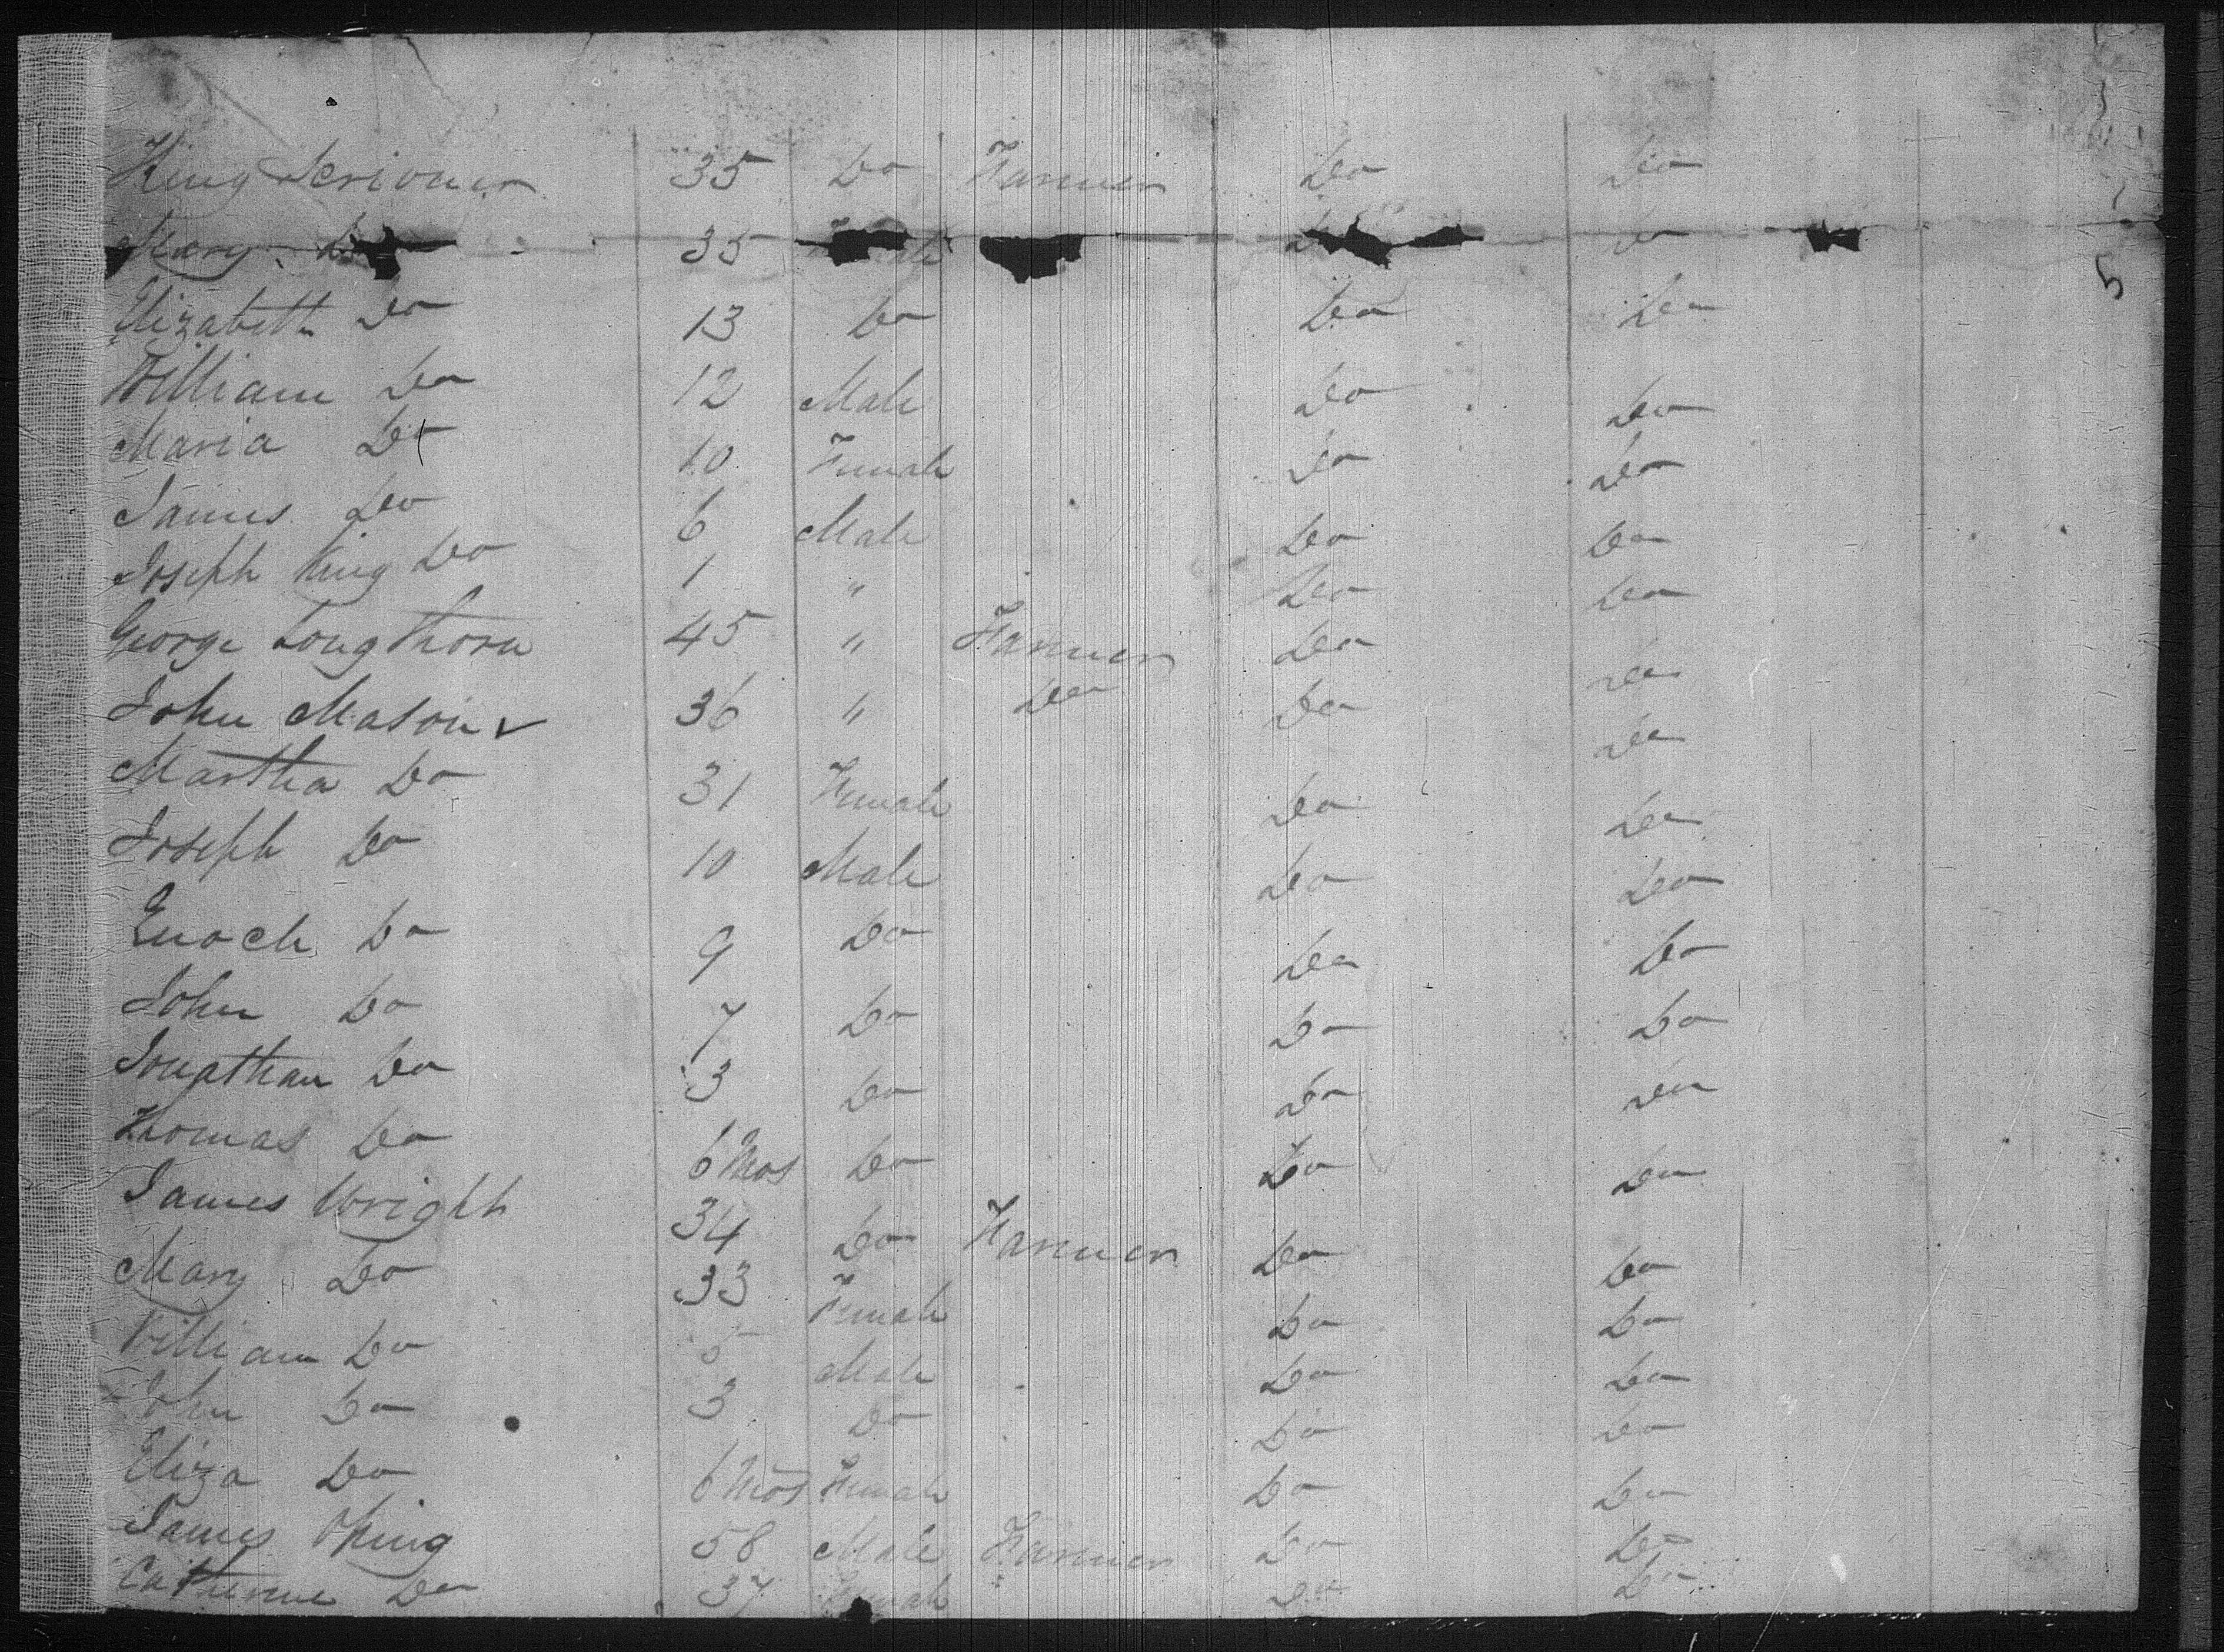 King Scrioner 35 Do Farmer Do Do
Mary Do 35 Do
5
Elizabeth Do 13 Do Do Do
William Do 12 Male Do Do
Maria Do 10 Female Do Do
James Do 6 Male Do Do
Joseph King Do 1 " Do Do
George Longthorn 45 " Farmer Do Do
John Mason ✓ 36 " Do Do Do
Martha Do 31 Female Do Do
Joseph Do 10 Male Do Do
Enoch Do 9 Do Do Do
John Do 7 Do Do Do
Jonathan Do 3 Do Do Do
Thomas Do 6 Mos Do Do Do
James Wright 34 Do Farmer Do Do
Mary Do 33 Female Do Do
William Do 5 Male Do Do
John Do 3 Do Do Do
Eliza Do 6 Mos Female Do Do
James King 58 Male Farmer Do Do
Catherine Do 37 Female Do Do